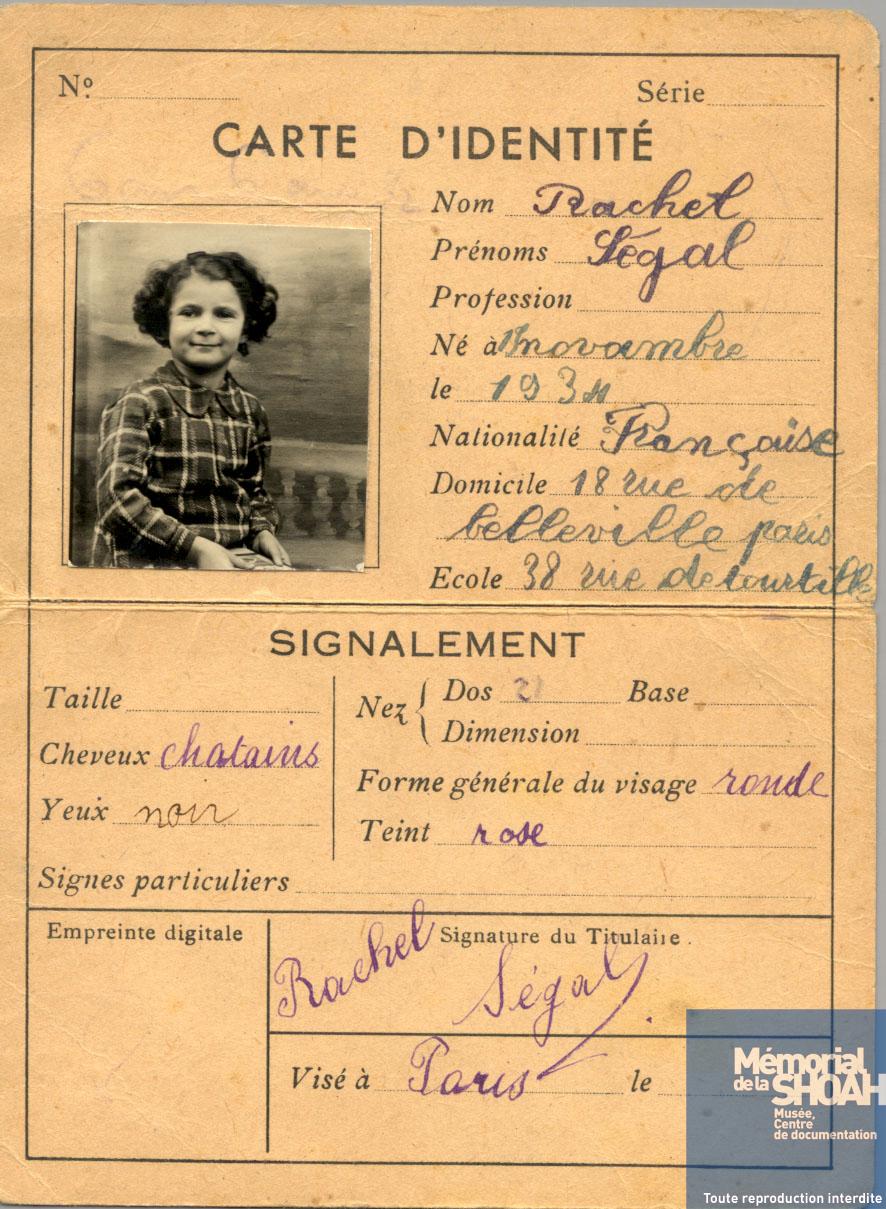 Nº
Série
CARTE D'IDENTITÉ
Nom Rachel
Prénoms Ségal
Profession
Né à novambre
le 1934
Nationalité Française
Domicile 18 rue de
belleville paris
Ecole 38 rue de tourtille
SIGNALEMENT
Taille
Cheveux chatains
Yeux noir
Nez
Dos 21
Base
Dimension
Forme générale du visage ronde
Teint rose
Signes particuliers
Empreinte digitale
Signature du Titulaire.
Rachel Ségal
Visé à Paris le
Mémorial
de la SHOAH
Musée,
Centre
de documentation
Toute reproduction interdite